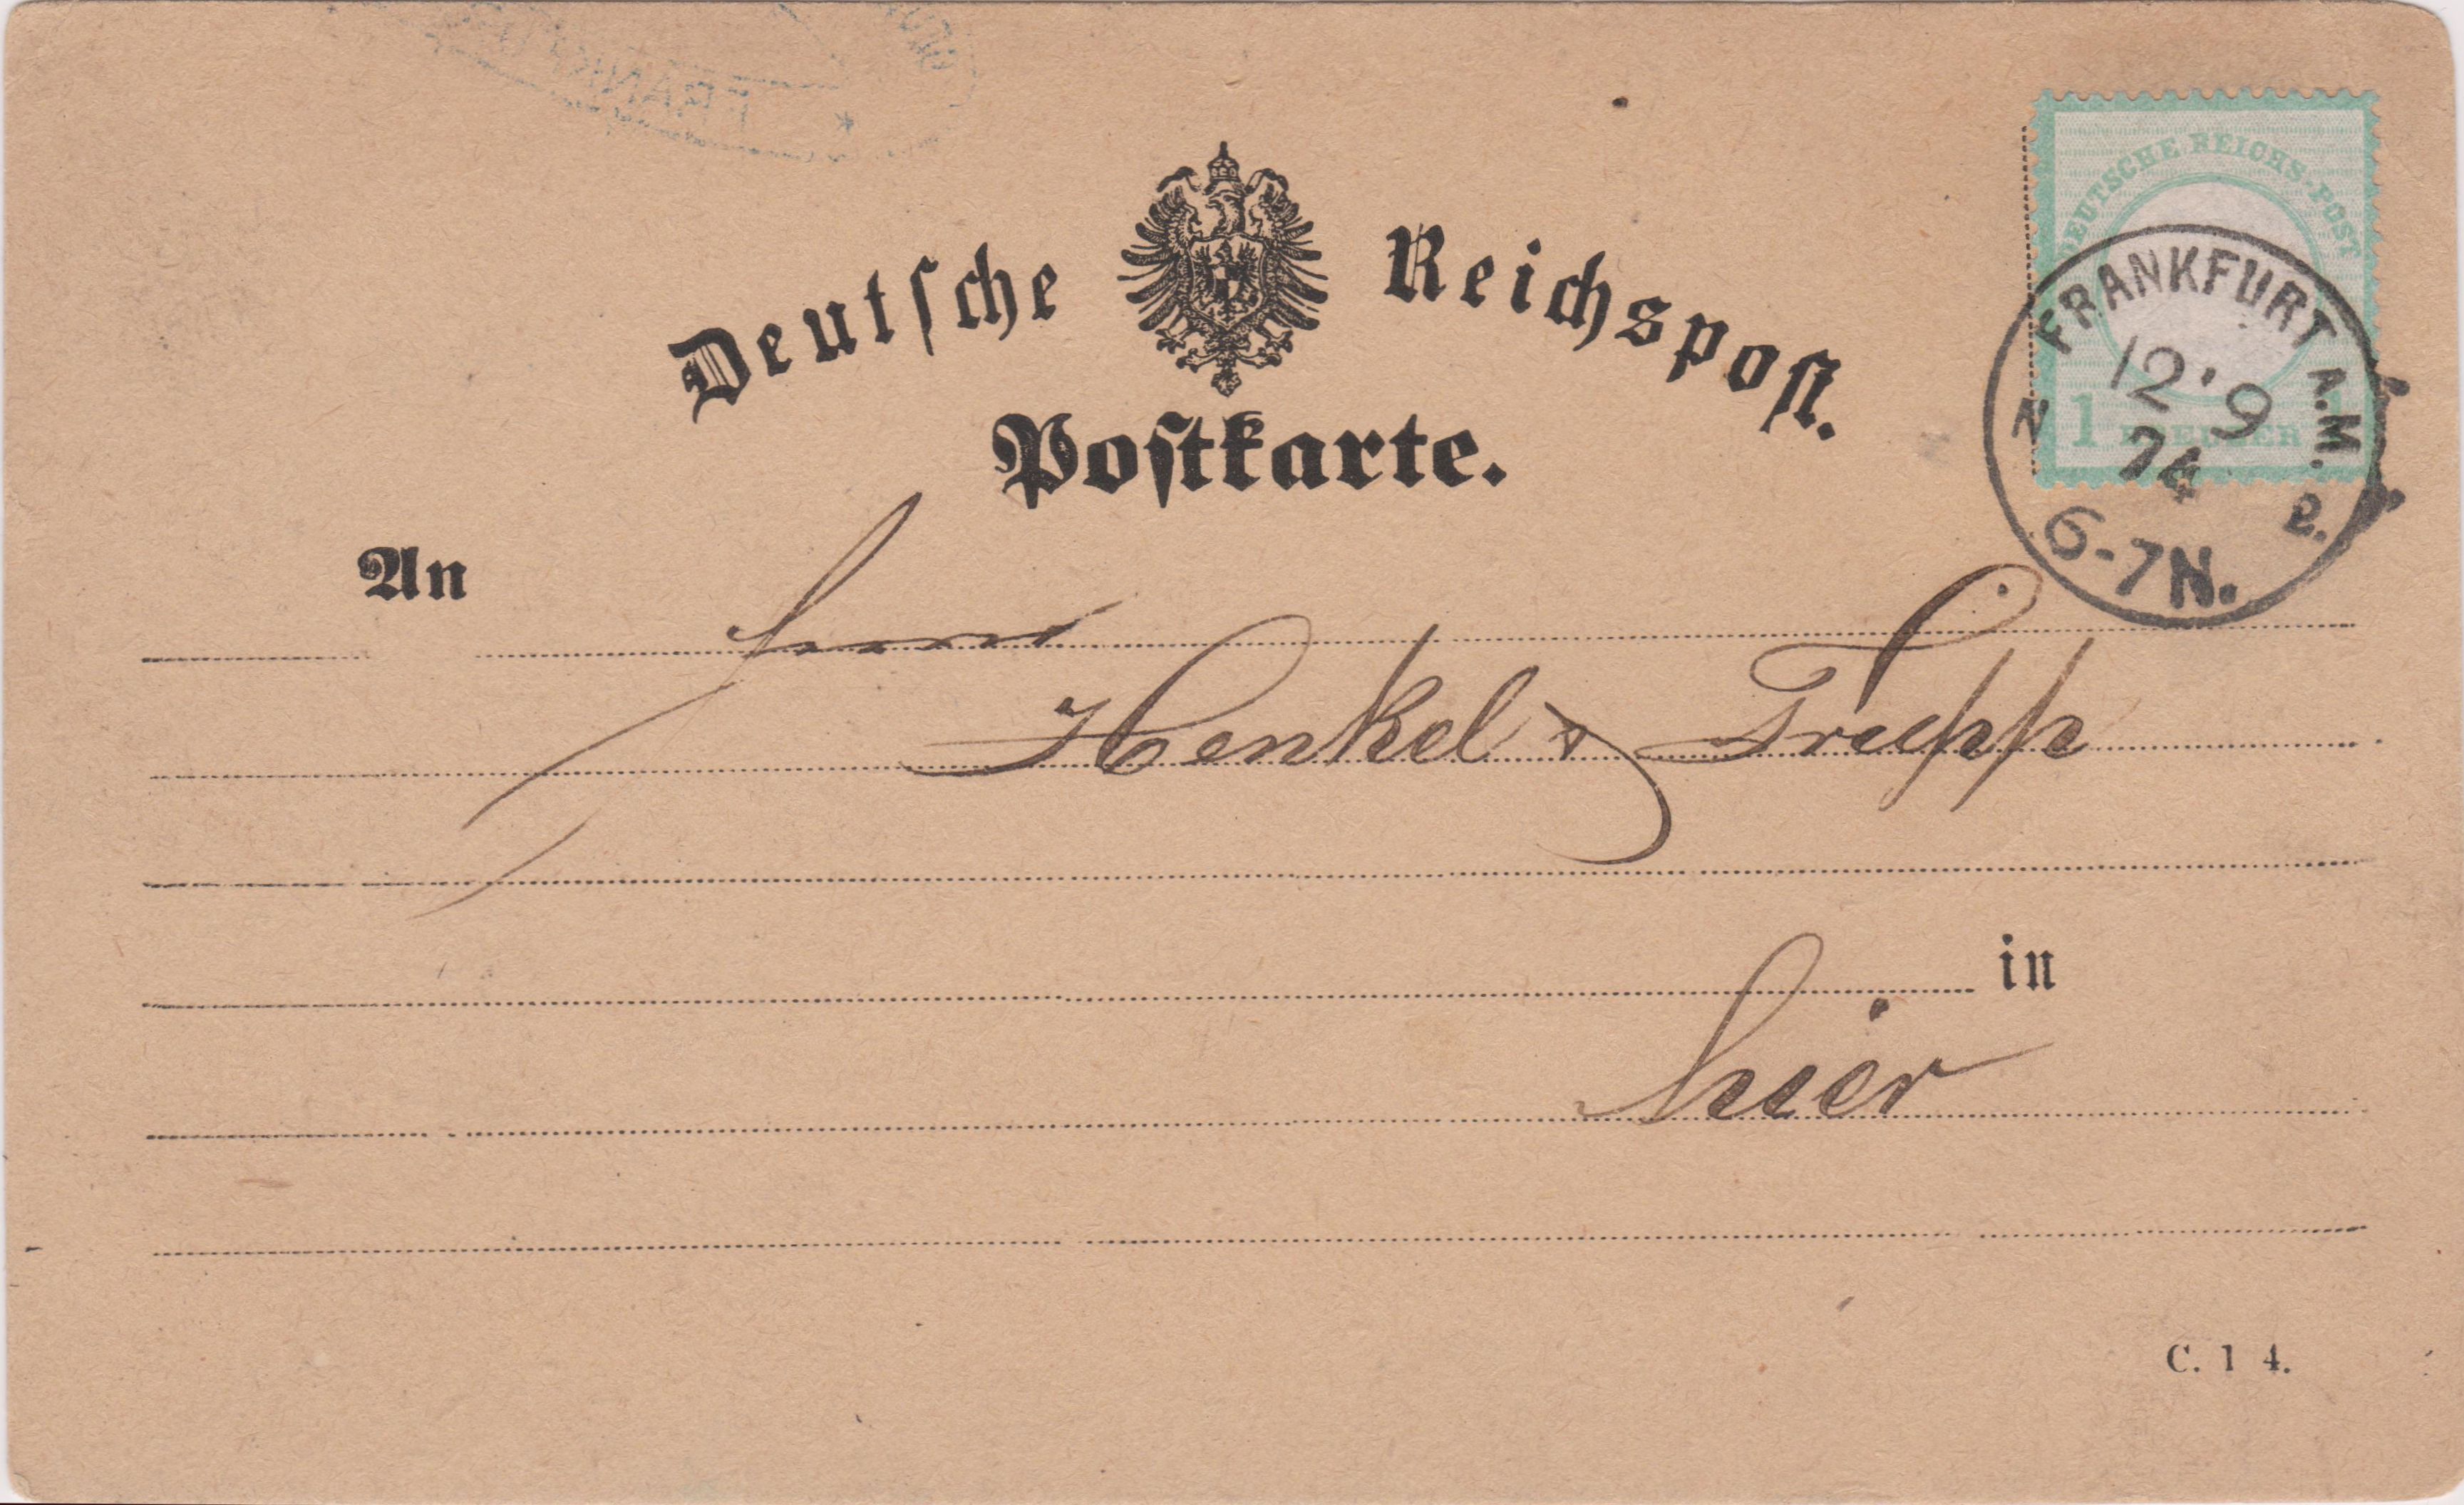 FRANK
DEUTSCHE REICHS-POST
Deutsche Reichspost.
FRANKFURT A.M.
12 9
74
N 2.
6-7N.
1
Postkarte.
An
Herrn
Henkel & Trupp
in
hier
C. 1 4.